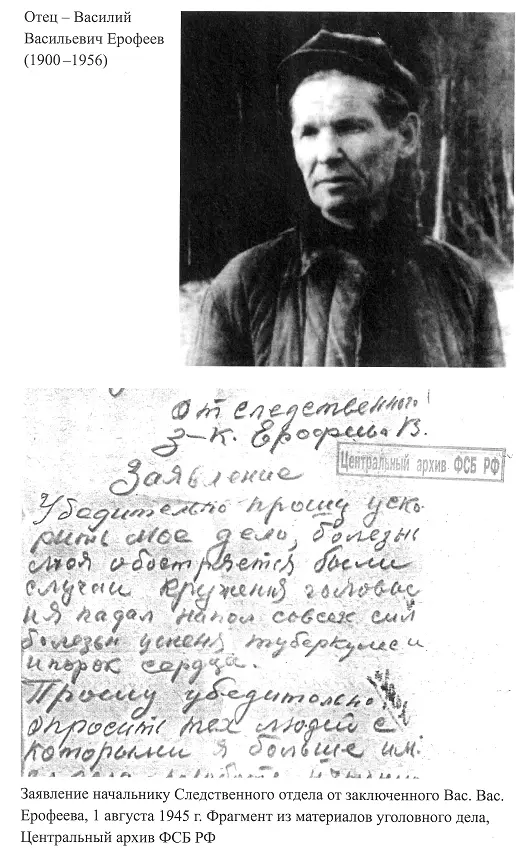 Отец – Василий
Васильевич Ерофеев
(1900–1956)
От следственного
з-к. Ерофеева В.
Центральный архив ФСБ РФ
Заявление
Убедительно прошу уско
рить мое дело, болезнь
моя обостряется были
случаи кружения головы
и я падал на пол совсех сил
болезнь у меня туберкулес и
и порок сердца.
Прошу убедительно
опросить тех людей с
которыми я больше им
Заявление начальнику Следственного отдела от заключенного Вас. Вас.
Ерофеева, 1 августа 1945 г. Фрагмент из материалов уголовного дела,
Центральный архив ФСБ РФ